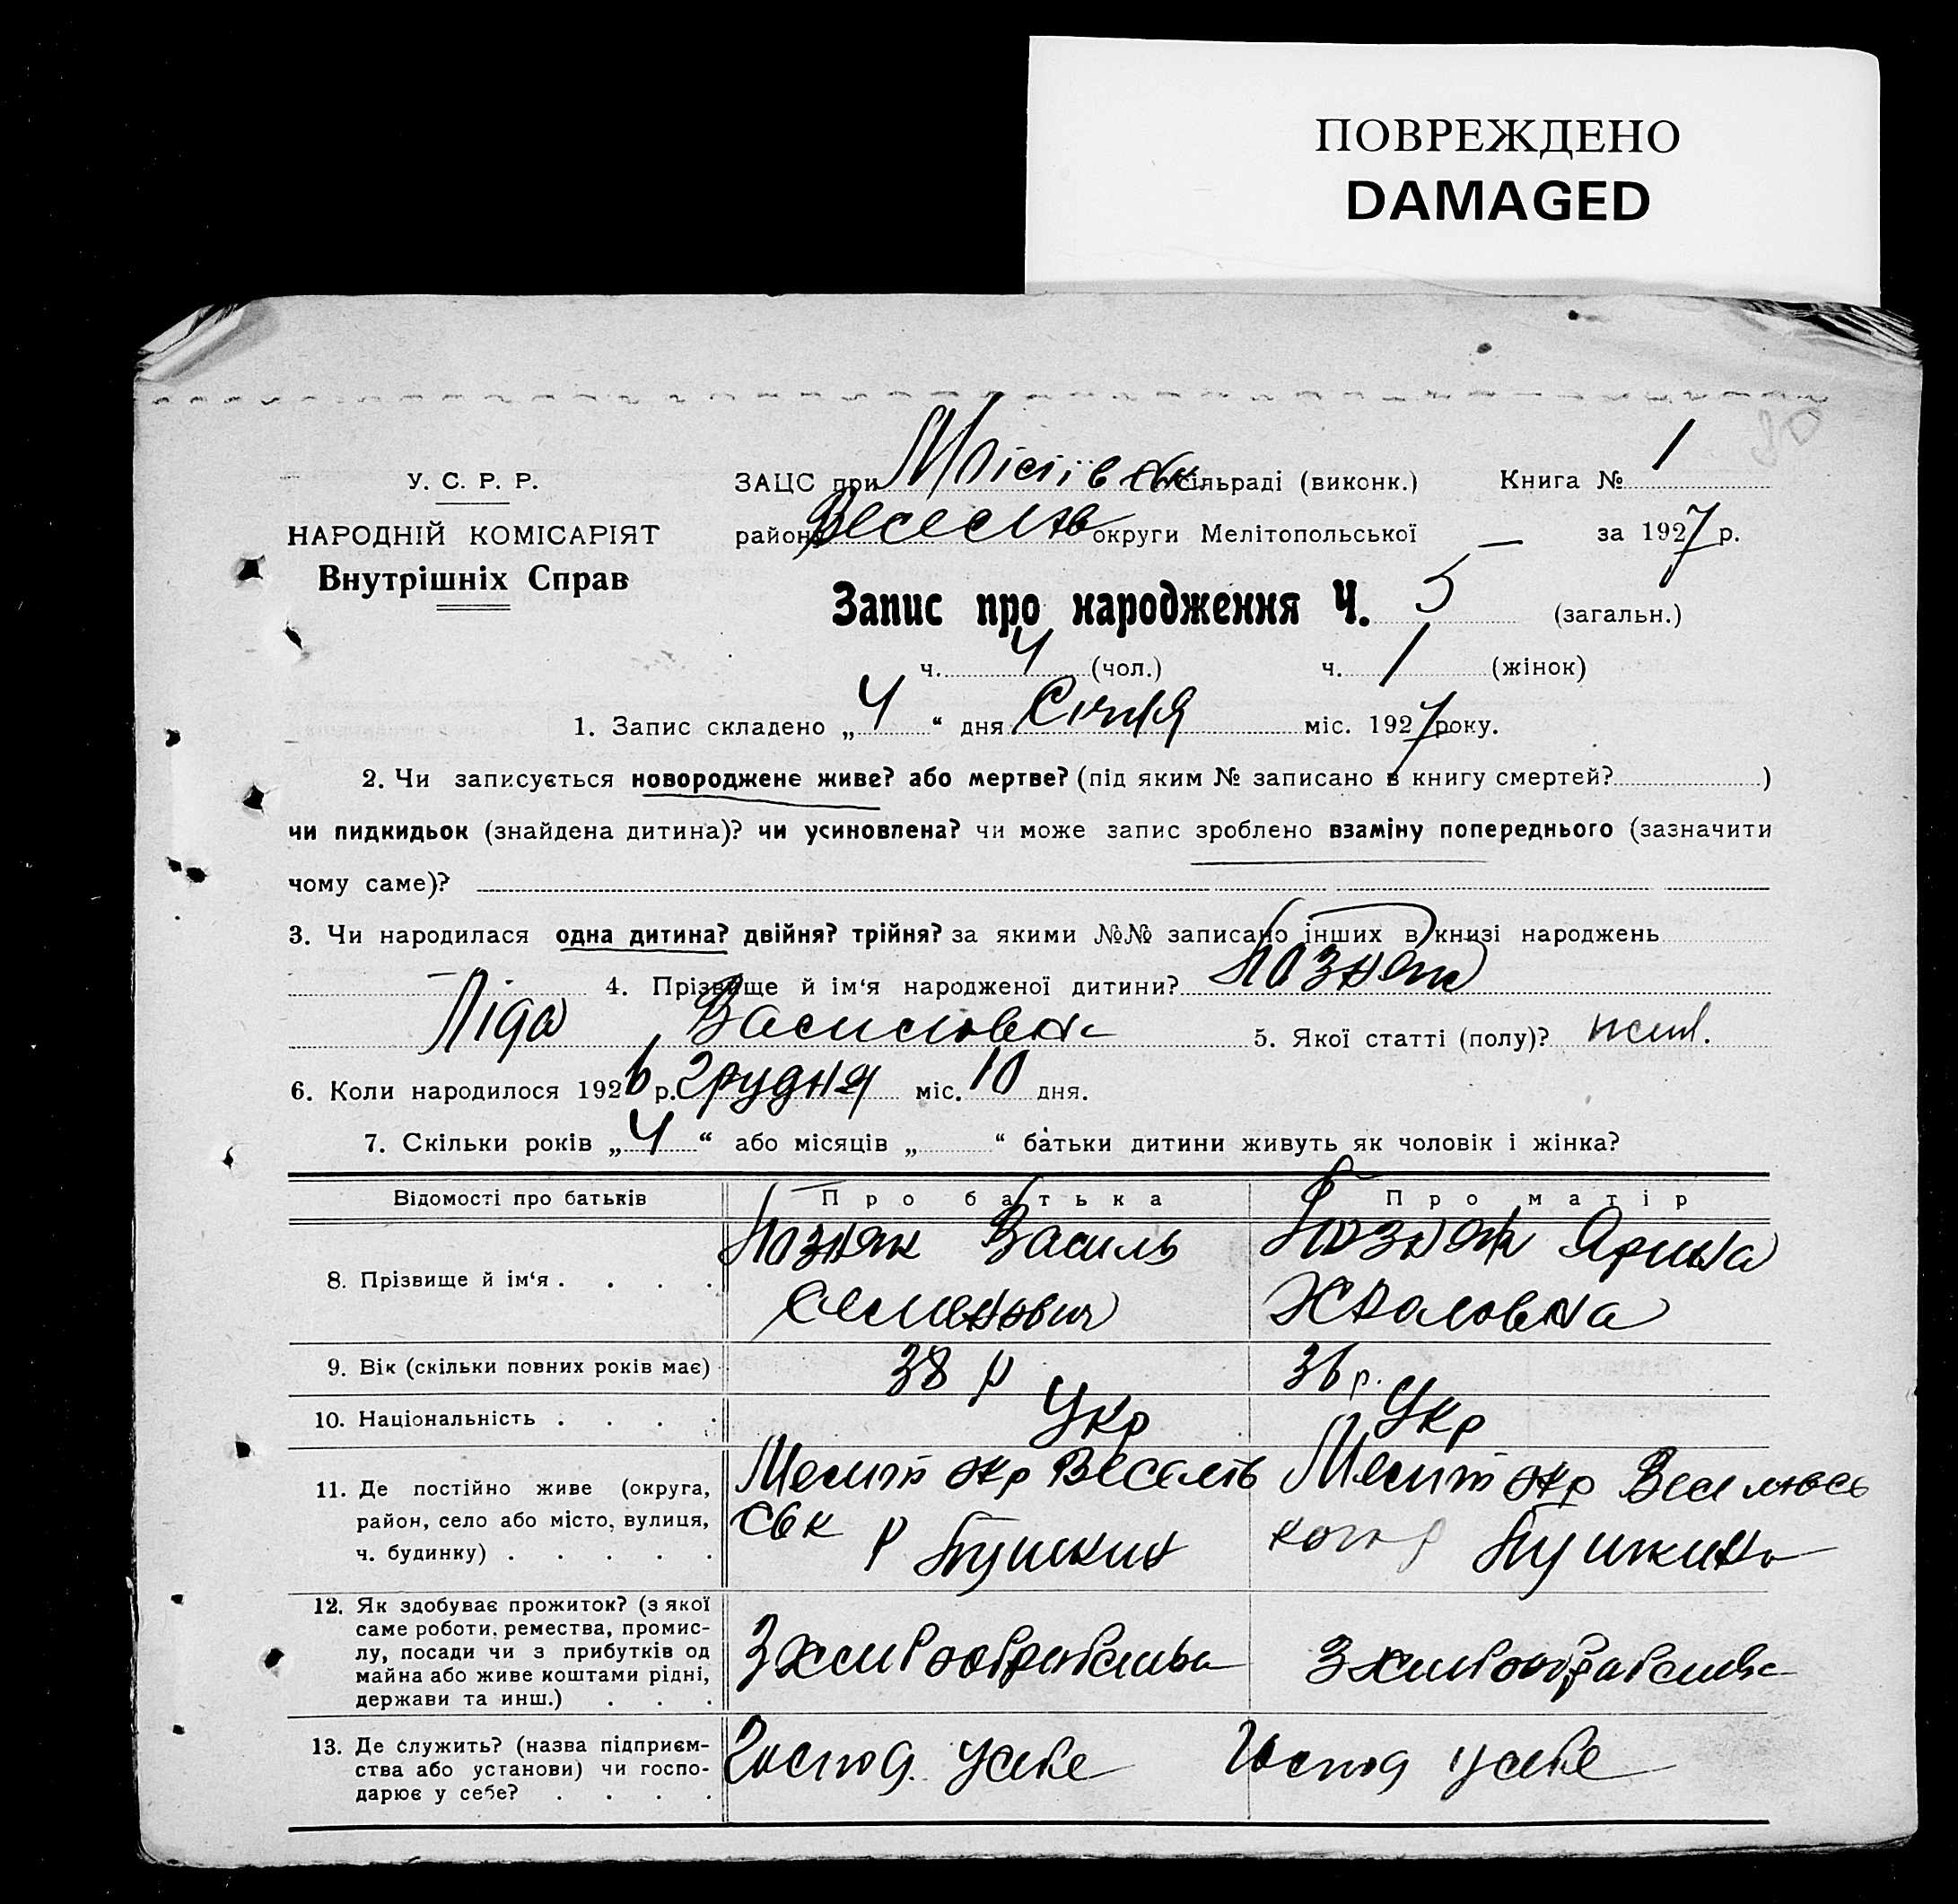 ПОВРЕЖДЕНО
DAMAGED
30
У. С. Р. Р.
НАРОДНІЙ КОМІСАРІЯТ
Внутрішніх Справ
ЗАЦС при сільраді (виконк.) Книга № 1
району Веселів округи Мелітопольської за 1927 р.
Запис про народження Ч. 5 (загальн.)
ч. 4 (чол.) ч. 1 (жінок)
1. Запис складено „4“ дня Січня міс. 1927 року.
2. Чи записується новороджене живе? або мертве? (під яким № записано в книгу смертей? )
чи пидкидьок (знайдена дитина)? чи усиновлена? чи може запис зроблено взаміну попереднього (зазначити
чому саме)?
3. Чи народилася одна дитина? двійня? трійня? за якими №№ записано інших в книзі народжень
— 4. Прізвище й ім‘я народженої дитини? Позняк
Ліда Василовна 5. Якої статті (полу)? жін.
6. Коли народилося 1926 р. Грудня міс. 10 дня.
7. Скільки років „4“ або місяців „ “ батьки дитини живуть як чоловік і жінка?
Відомості про батьків Про батька Про матір
8. Прізвище й ім‘я . . . . Позняк Василь Позняк Ярина
Семенович
9. Вік (скільки повних років має) 38 р 36 р.
10. Національність . . . . Укр Укр
11. Де постійно живе (округа, Мелит окр Веселів Мелит окр Веселовсь
район, село або місто, вулиця, ськ р Пушкин кого р Пушкино
ч. будинку) . . . . .
12. Як здобуває прожиток? (з якої
саме роботи, ремества, промис-
лу, посади чи з прибутків од З хлиборобства З хлиборобства
майна або живе коштами рідні,
держави та инш.) . . .
13. Де служить? (назва підприєм- Господ. усебе Господ усебе
ства або установи) чи госпо-
дарює у себе? . . . .